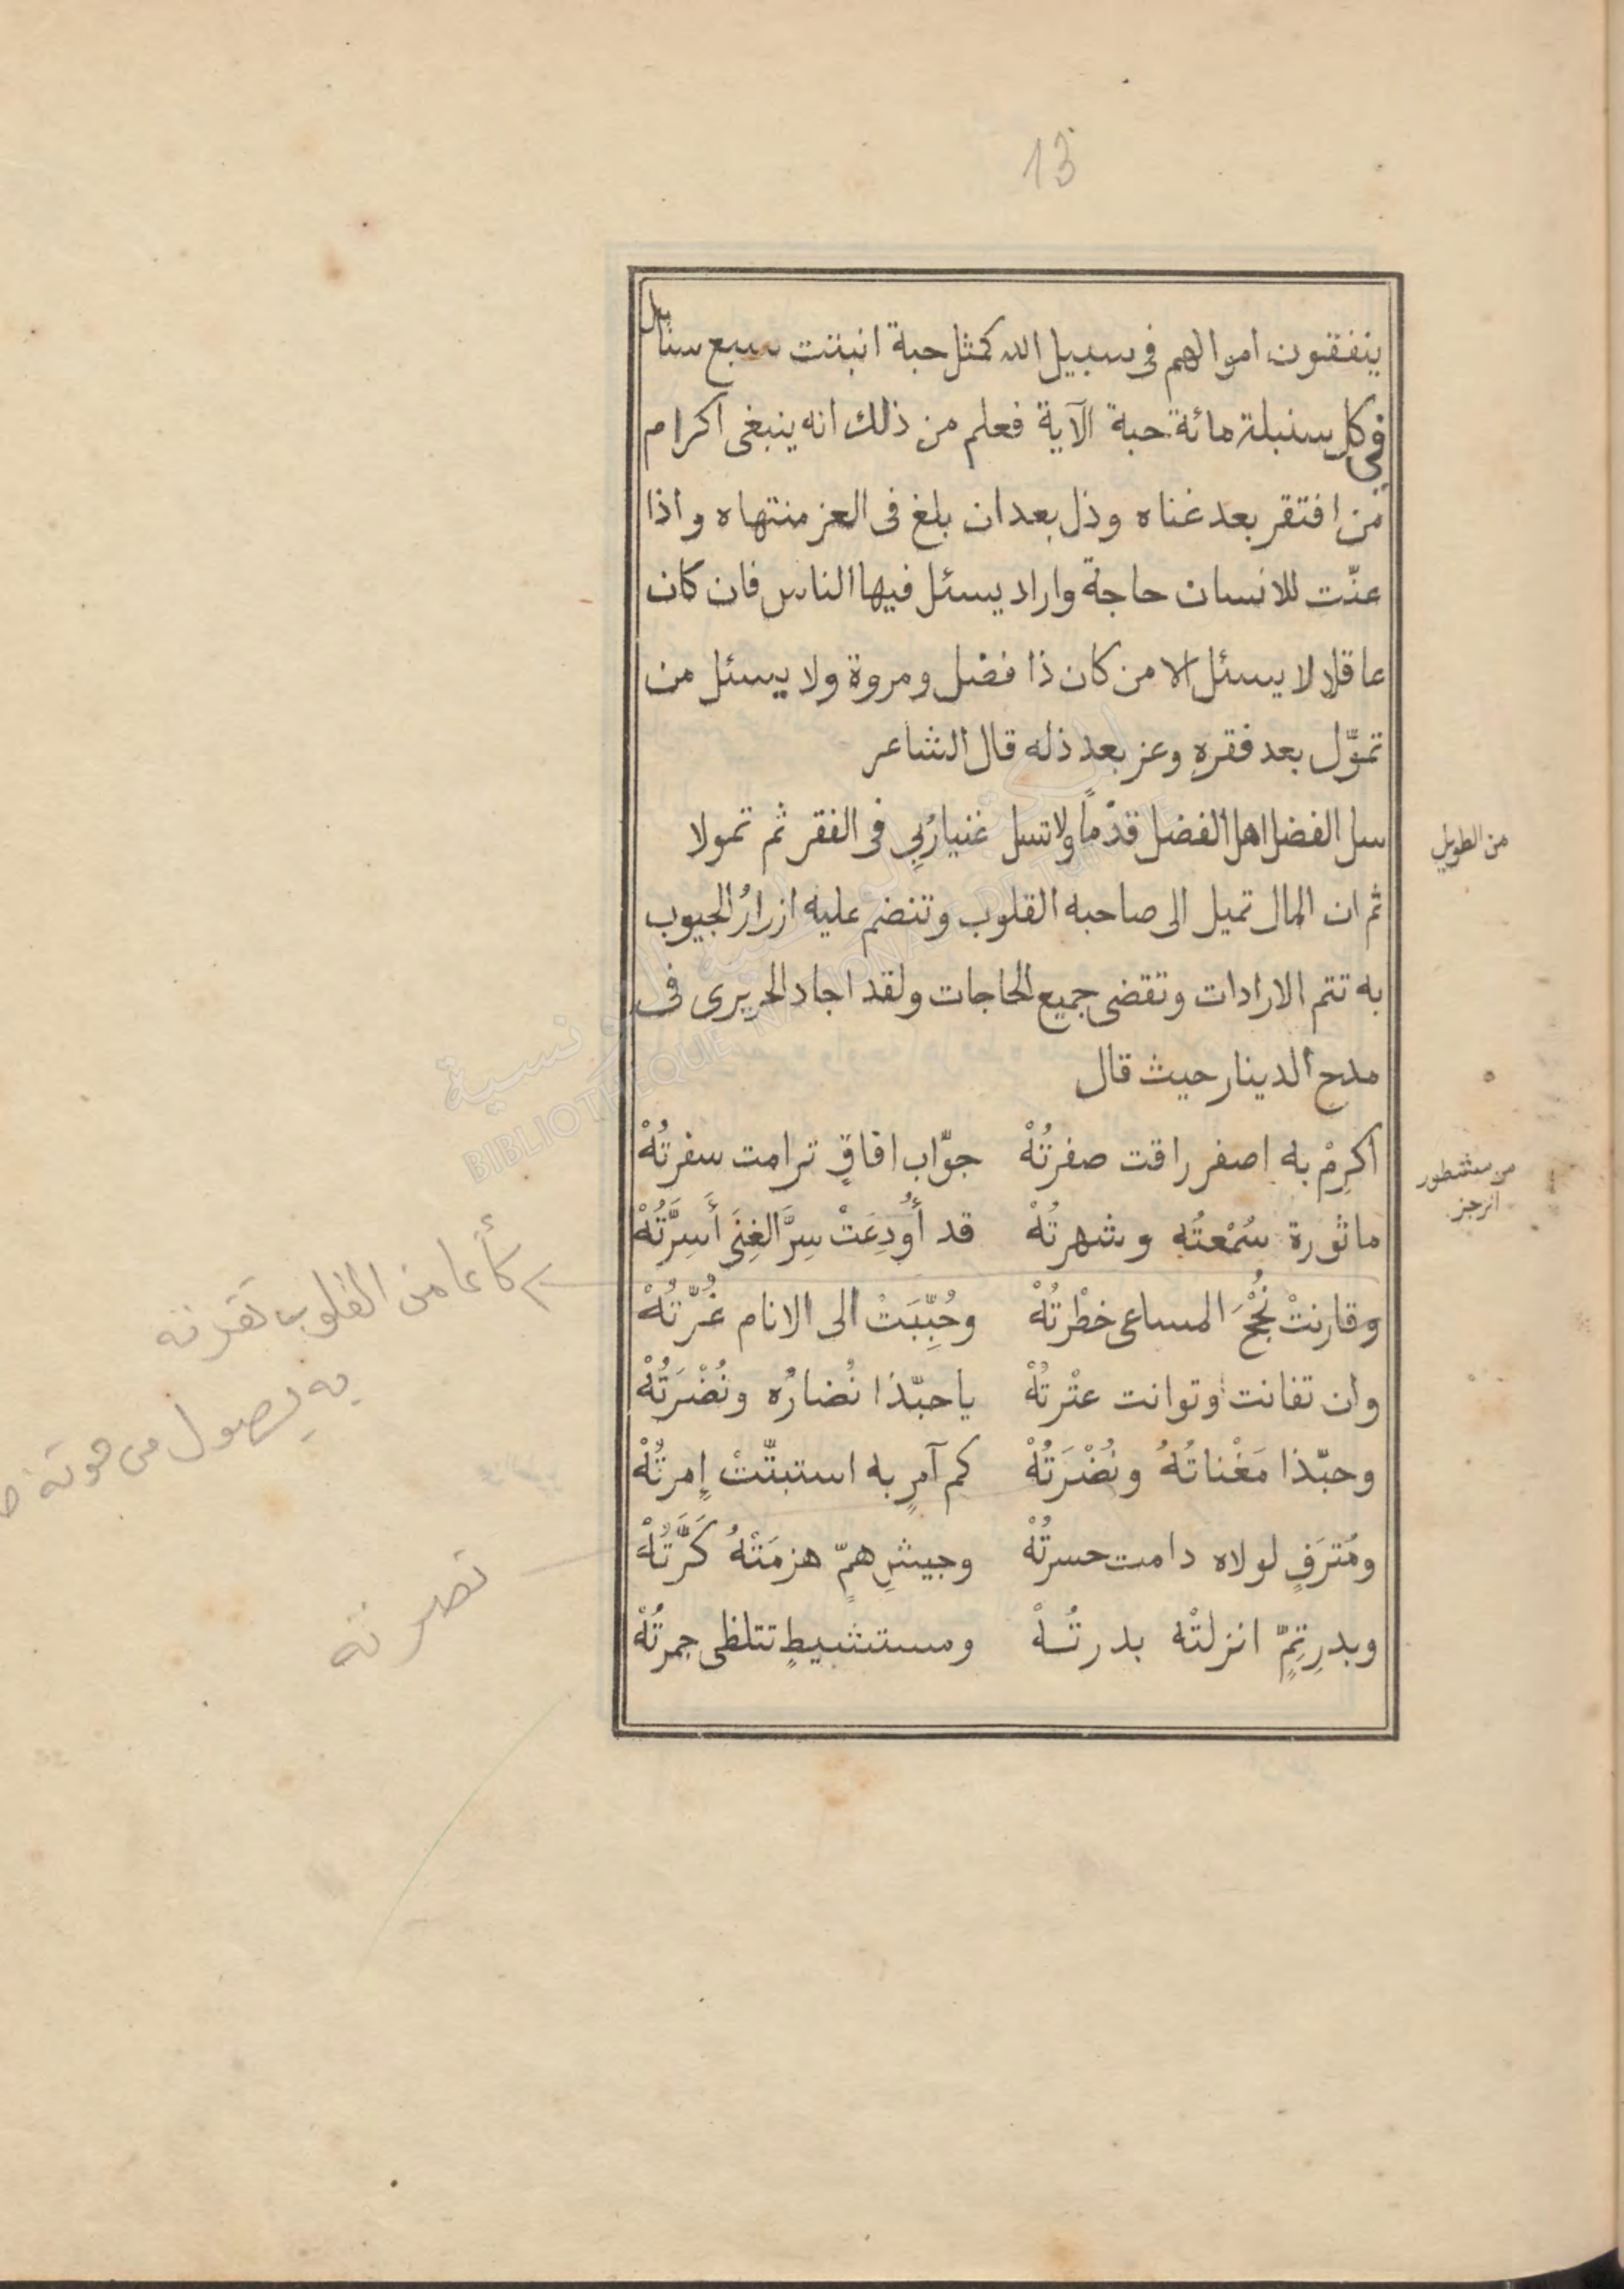 13
ينفقون اموالهم فى سبيل الله كمثل حبة انبتت سبع سنابل
فى كل سنبلة مائة حبة الآية فعلم من ذلك انه ينبغى اكرام
من افتقر بعد غناه وذل بعد ان بلغ فى العز منتهاه واذا
عنّت للانسان حاجة واراد يسئل فيها الناس فان كان
عاقلا لا يسئل الا من كان ذا فضل ومروة ولا يسئل من
تموَّل بعد فقرهِ وعز بعد ذله قال الشاعر
سل الفضل اهل الفضل قدْماً ولا تسل غنيا رُبِي فى الفقر ثم تمولا
من الطويل
ثم ان المال تميل الى صاحبه القلوب وتنضم عليه ازرارُ الجيوب
به تتم الارادات وتقضى جميع الحاجات ولقد اجاد الحريرى فى
مدح الدينار حيث قال
اكرِمْ به اصفر راقت صفرتُهْ جوّاب افاقٍ ترامت سفرتُهْ
من مشطور
الرجز
ماثورة سُمْعتُه وشهرتُهْ قد أُودِعَتْ سِرَّ الغِنَى أَسِرَّتُهْ
وقارنتْ نُجْحَ المساعى خطْرتُهْ وحُبِّبَتْ الى الانام غُرَّتُهْ
كأنما من القلوب نقرته
وان تفانت او توانت عتْرتُهْ يا حبّذا نُضارُه ونُضْرَتُهْ
به يصول من حوته
وحبّذا مَغْناتُهُ ونُصْرَتُهْ كم آمرٍ به استبتَّتْ إمرتُهْ
ومُترَفٍ لولاه دامت حسرتُهْ وجيشِ همٍّ هزمَتْهُ كَرَّتُهْ
وبدرِ تِمٍّ انزلتْه بدرتُهْ ومستشيطٍ تتلظى جمرتُهْ
المكتبة الوطنية التونسية
BIBLIOTHEQUE NATIONALE DE TUNISIE